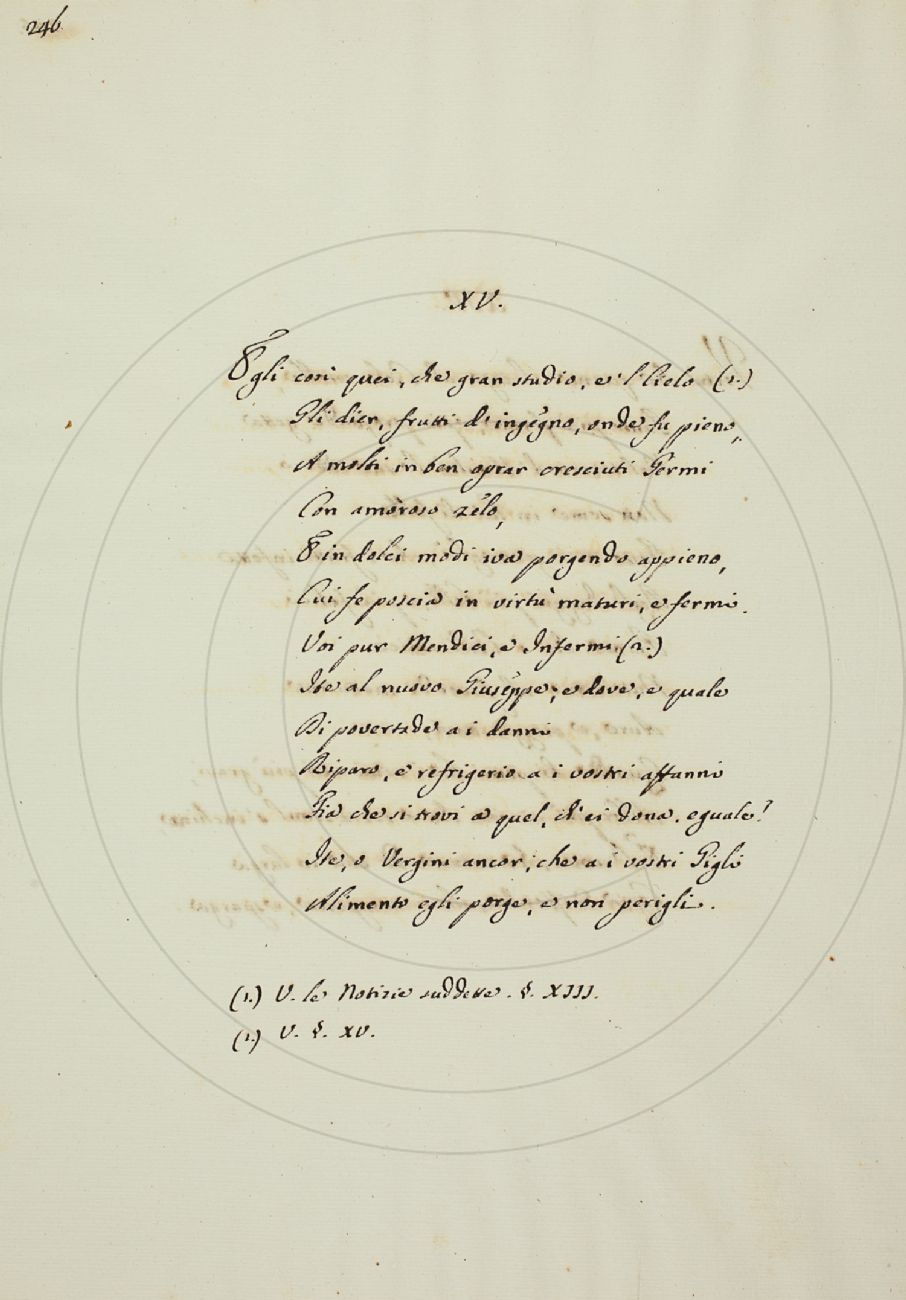 246
XV.
Egli così quei, che gran studio, e 'l Cielo (1.)
Gli dier, frutti d' ingegno, onde fu pieno,
A molti in ben oprar cresciuti Germi
Con amoroso zelo,
E in dolci modi iva porgendo appieno,
Cui fe poscia in virtù maturi, e fermi.
Voi pur Mendici, e Infermi (2.)
Ite al nuovo Giuseppe; e dove, e quale
Di povertade a i danni
Riparo, e refrigerio a i vostri affanni
Fia che si trovi a quel, ch' ei dona, eguale?
Ite, o Vergini ancor; che a i vostri Gigli
Alimento egli porge, e non perigli.
(1.) V. le Notizie suddette. §. XIII.
(2.) V. §. XV.